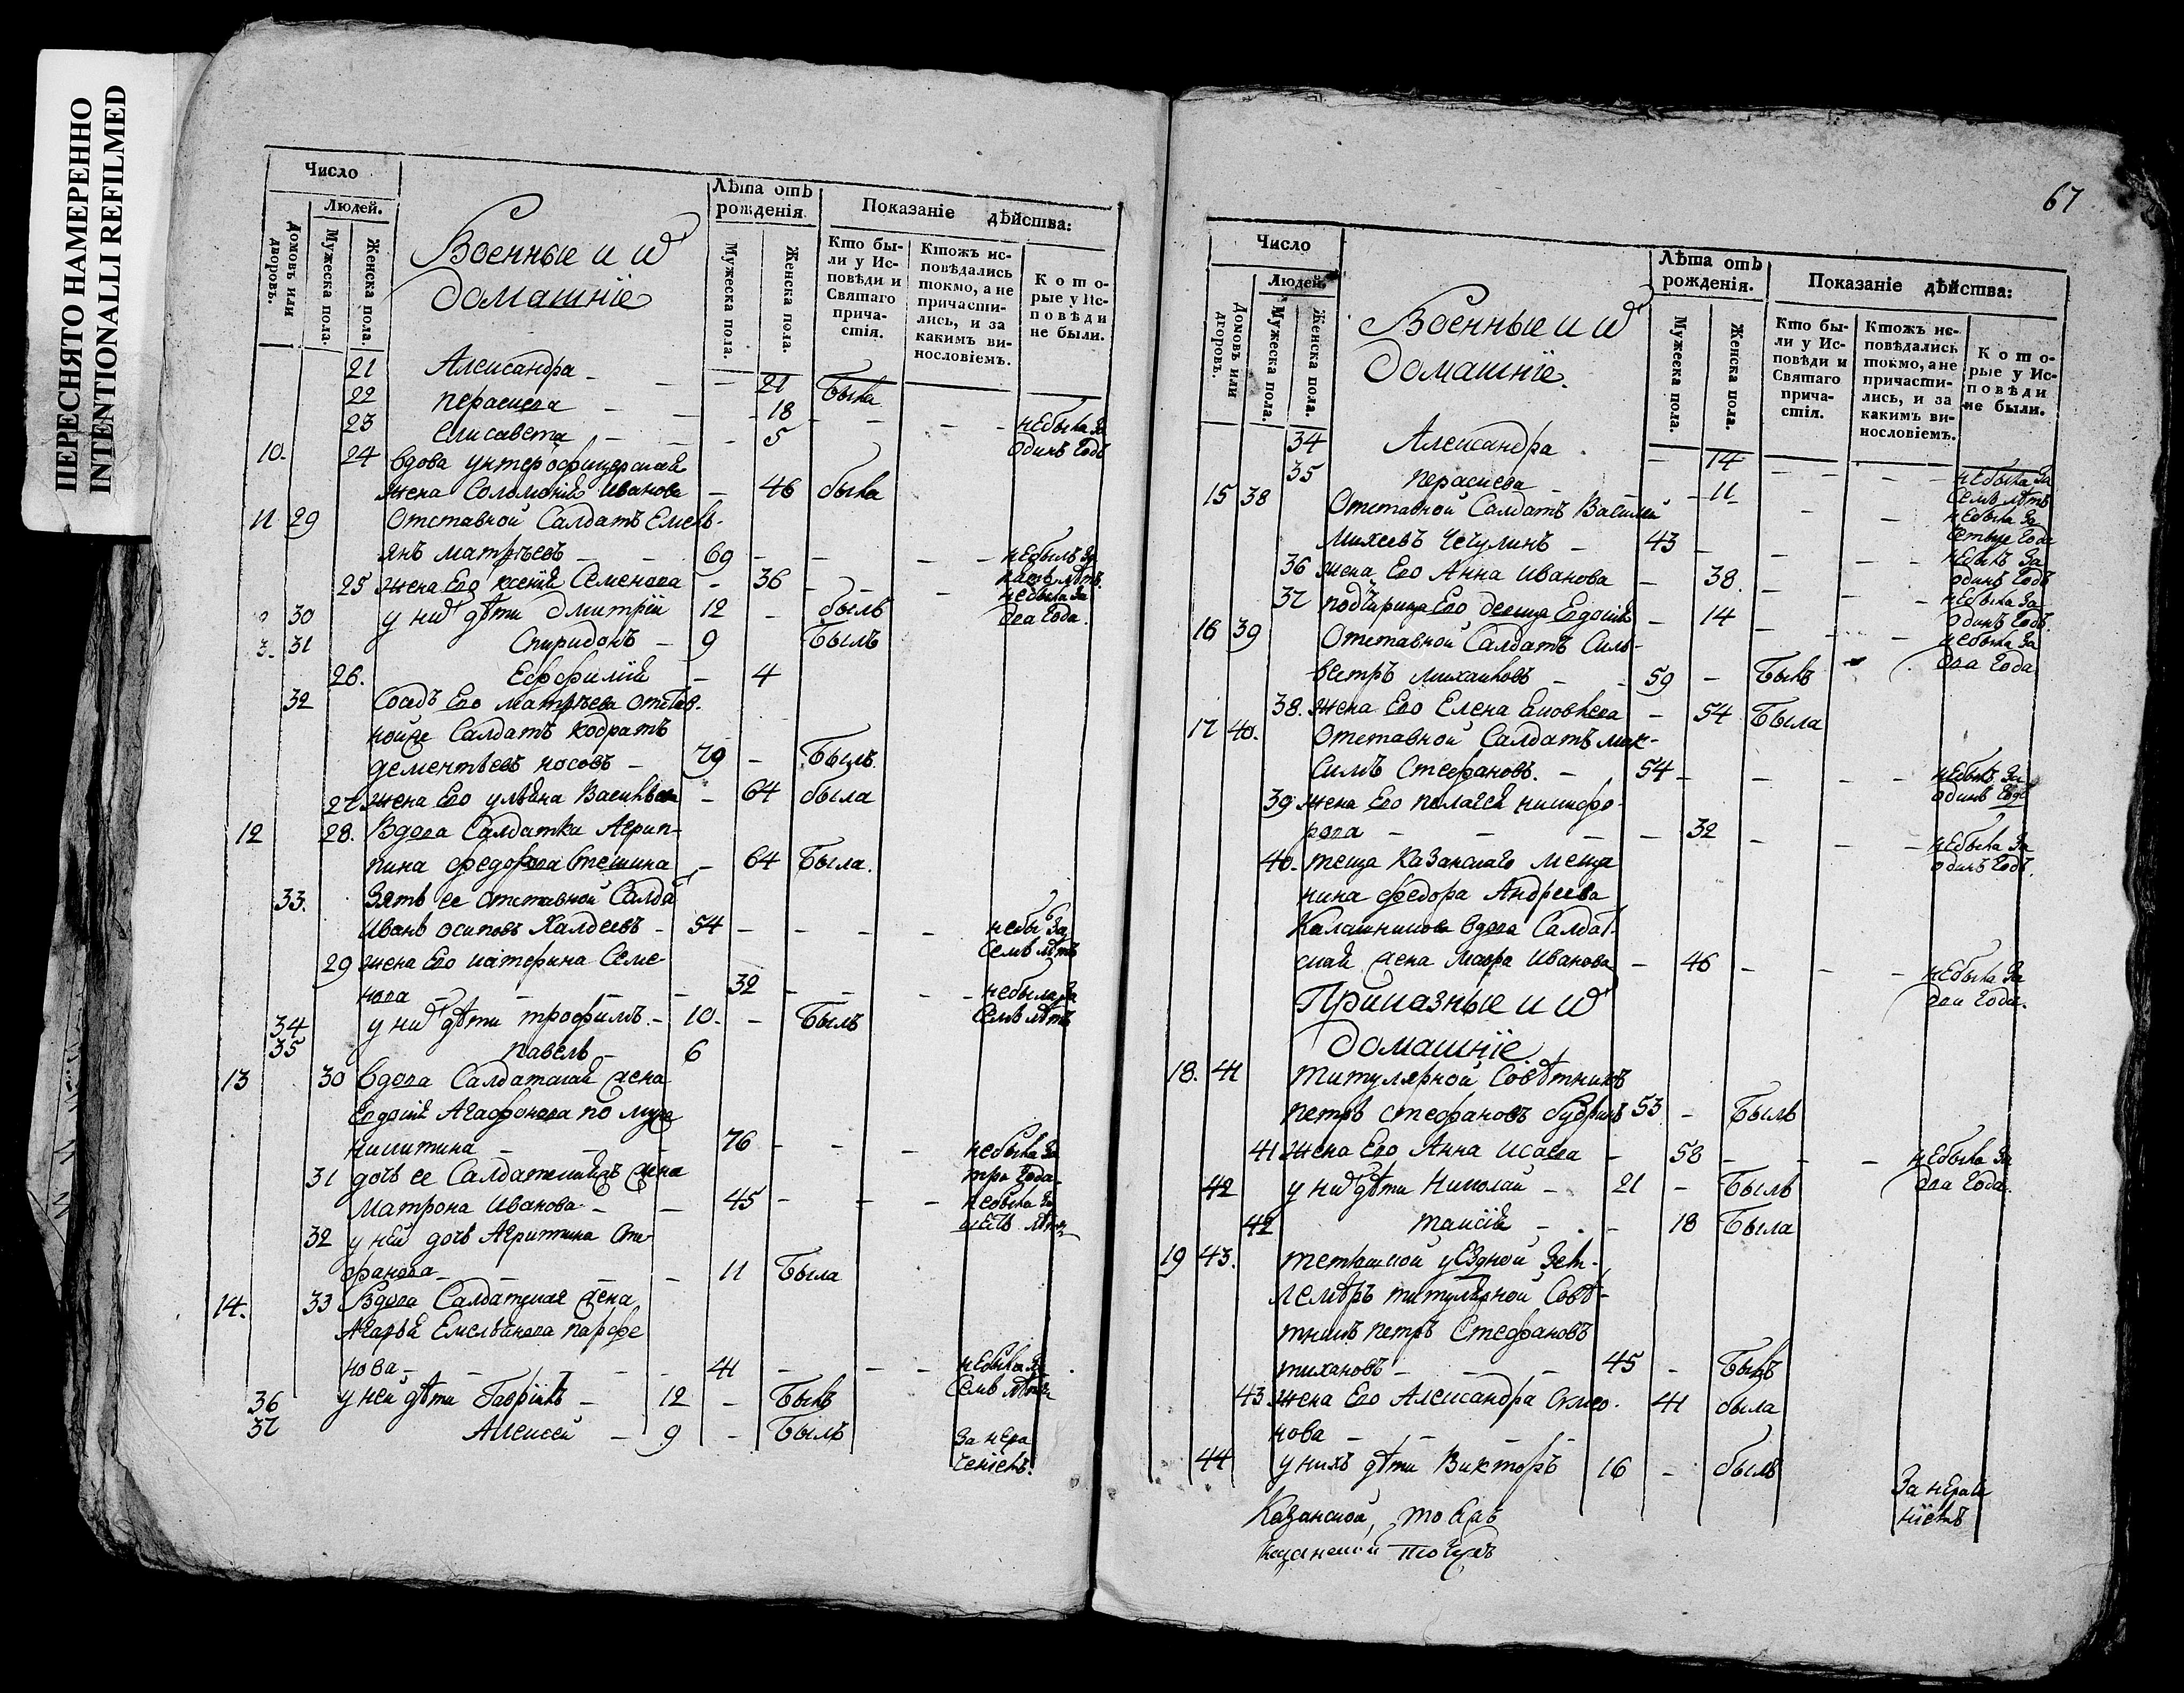 ПЕРЕСНЯТО НАМЕРЕННО
INTENTIONALLI REFILMED
Число
Людей.
Домовъ или дворовъ.
Мужеска пола.
Женска пола.
Военные и
домашніе
Лѣта отъ рожденія
Мужеска пола.
Женска пола.
Показаніе дѣйства:
Кто бы-
ли у Ис-
повѣди и
Святаго
прича-
стія.
Ктожъ ис-
повѣдались
токмо, а не
причасти-
лись, и за
какимъ ви-
нословіемъ.
Кото-
рые у Ис-
повѣди
не были.
21 Александра - - - 21 Была
22 Параскева - - - 18 - - - небыла за одинъ годъ
23 Елисавета - - - 5
10. 24 вдова унтерофицерская
жена Соломонія Иванова - 46 была
11 29 Отставной Салдатъ Емель-
янъ Матвѣевъ - - 69 - - - небылъ за пять лѣтъ
25 жена Его Ксенія Семенова - 36 - - - небыла за два года.
30 у них дѣти Дмитріи 12 - былъ
31 Спиридонъ - 9 Былъ
26. Евфимія - 4
32 Сосѣдъ Его Матвѣева отстав-
ной Салдатъ Кодратъ
Дементьевъ Носовъ - 79 - Былъ.
27 жена Его Ульяна Васильева - 64 была
12 28. Вдова Салдатка Агрип-
пина Федорова Стешина - 64 Была.
33. Зять ее отставной Салда
Иванъ Осиповъ Халдеевъ - 54 - - - - небы за Семь лѣтъ
29 жена Его Катерина Семе
нова - - - 32 - - - небыла за Семь лѣтъ
34 у них дѣти Трофимъ. - 10. - Былъ
35 Павелъ - 6
13 30 вдова Салдатская жена
Евдокія Агафонова по мужѣ
Никитина - - - 76 - - - небыла за три года.
31 дочь ее Салдатская жена
Матрона Иванова - - 45 - - - небыла за шесть лѣтъ
32 у ней дочь Агрипина Сте
фанова - - - - 11 Была
14. 33 Вдова Салдатская жена
Агафья Емельянова Парфе
нова - - - - 41 - - - небыла за Семь лѣтъ
36 у ней дѣти Гавріилъ - 12 - Былъ
37 Алексей - 9 - Былъ
За нера
ченіемъ.
67
Число
Людей.
Домовъ или дворовъ.
Мужеска пола.
Женска пола.
Военные и
домашніе.
Лѣта отъ рожденія.
Мужеска пола.
Женска пола.
Показаніе дѣйства:
Кто бы-
ли у Ис-
повѣди и
Святаго
прича-
стія.
Ктожъ ис-
повѣдались
токмо, а не
причасти-
лись, и за
какимъ ви-
нословіемъ.
Кото-
рые у Ис-
повѣди
не были.
34 Александра - 14 - - - небыла за Семь лѣтъ
35 Параскева - - - 11 - - небыла за четыре года
15 38 Отставной Салдатъ Василей
Михеевъ Чечулинъ - 43 - - - небылъ за одинъ годъ
36 жена Его Анна Иванова - 38. - - - небыла за одинъ годъ.
37 подчирица Его девица Евдокія - 14 - - - небыла за два года
16 39 Отставной Салдатъ Силь-
вестръ Михаиловъ - - 59 - Былъ
38. жена Его Елена Яковлева - 54 Была
17 40. Отставной Салдатъ Мак-
симъ Стефановъ. - 54 - - - - небылъ за одинъ годъ
39 жена Его Пелагея Никифо-
рова - - - - 32 - - - небыла за одинъ годъ.
40. теща Казанскаго меща
нина Федора Андреева
Калашникова вдова Салдат-
ская жена Мавра Иванова - 46 - - - небыла за два года.
Приказные и
домашніе.
18. 41 Титулярной Совѣтникъ
Петръ Стефановъ 53 - Былъ
41 жена Его Анна Исаева - 58 - - - небыла за два года.
42 у них дѣти Николай - 21 - Былъ
42 Таисія - - - 18 Была
19 43. Тетюшской уѣздной Зем-
лемѣръ титулярной Совѣ-
тникъ Петръ Стефановъ
Тихановъ - - - 45 - Былъ
43. жена Его Александра Семо- 41 была
нова - - - -
44 у нихъ дѣти Викторъ 16 - былъ
За нераче
ніемъ
Казанской,